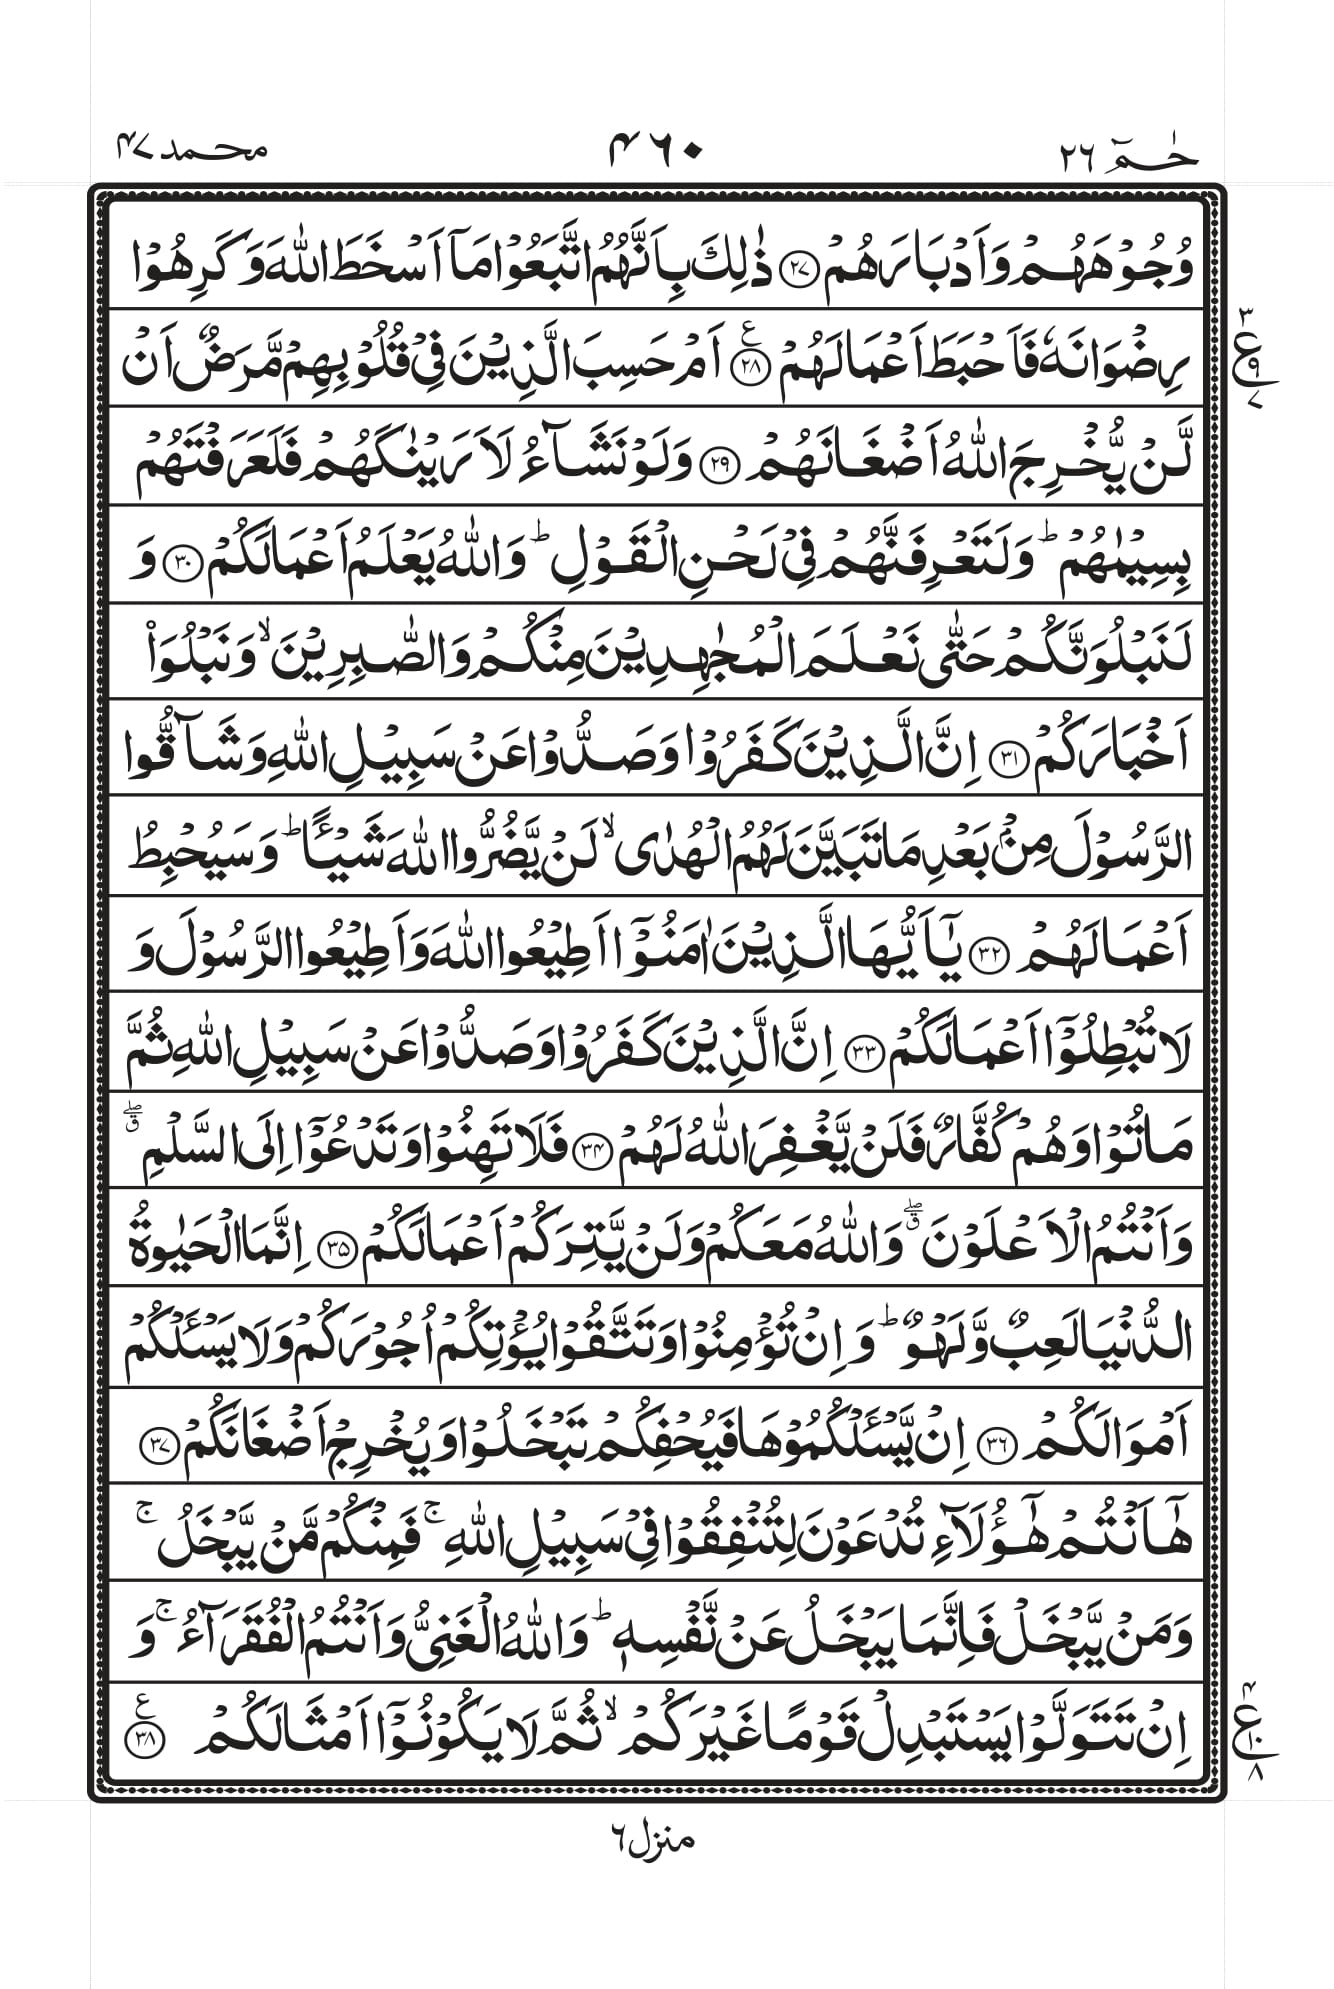 حٰـمٓ ٢٦ ۴۶۰ محمد ۴۷
وُجُوْهَهُمْ وَاَدْبَارَهُمْ ﴿۲۷﴾ ذٰلِكَ بِاَنَّهُمُ اتَّبَعُوْا مَاۤ اَسْخَطَ اللّٰهَ وَكَرِهُوْا
رِضْوَانَهٗ فَاَحْبَطَ اَعْمَالَهُمْ ﴿۲۸﴾ ع اَمْ حَسِبَ الَّذِيْنَ فِيْ قُلُوْبِهِمْ مَّرَضٌ اَنْ
۳ ع ۹ ۷
لَّنْ يُّخْرِجَ اللّٰهُ اَضْغَانَهُمْ ﴿۲۹﴾ وَلَوْ نَشَآءُ لَاَرَيْنٰكَهُمْ فَلَعَرَفْتَهُمْ
بِسِيْمٰهُمْ ؕ وَلَتَعْرِفَنَّهُمْ فِيْ لَحْنِ الْقَوْلِ ؕ وَاللّٰهُ يَعْلَمُ اَعْمَالَكُمْ ﴿۳۰﴾ وَ
لَنَبْلُوَنَّكُمْ حَتّٰى نَعْلَمَ الْمُجٰهِدِيْنَ مِنْكُمْ وَالصّٰبِرِيْنَ ۙ وَنَبْلُوَا۟
اَخْبَارَكُمْ ﴿۳۱﴾ اِنَّ الَّذِيْنَ كَفَرُوْا وَصَدُّوْا عَنْ سَبِيْلِ اللّٰهِ وَشَآقُّوا
الرَّسُوْلَ مِنْۢ بَعْدِ مَا تَبَيَّنَ لَهُمُ الْهُدٰى ۙ لَنْ يَّضُرُّوا اللّٰهَ شَيْـًٔا ؕ وَسَيُحْبِطُ
اَعْمَالَهُمْ ﴿۳۲﴾ يٰۤاَيُّهَا الَّذِيْنَ اٰمَنُوْۤا اَطِيْعُوا اللّٰهَ وَاَطِيْعُوا الرَّسُوْلَ وَ
لَا تُبْطِلُوْۤا اَعْمَالَكُمْ ﴿۳۳﴾ اِنَّ الَّذِيْنَ كَفَرُوْا وَصَدُّوْا عَنْ سَبِيْلِ اللّٰهِ ثُمَّ
مَاتُوْا وَهُمْ كُفَّارٌ فَلَنْ يَّغْفِرَ اللّٰهُ لَهُمْ ﴿۳۴﴾ فَلَا تَهِنُوْا وَتَدْعُوْۤا اِلَى السَّلْمِ ۖق
وَاَنْتُمُ الْاَعْلَوْنَ ۖق وَاللّٰهُ مَعَكُمْ وَلَنْ يَّتِرَكُمْ اَعْمَالَكُمْ ﴿۳۵﴾ اِنَّمَا الْحَيٰوةُ
الدُّنْيَا لَعِبٌ وَّلَهْوٌ ؕ وَاِنْ تُؤْمِنُوْا وَتَتَّقُوْا يُؤْتِكُمْ اُجُوْرَكُمْ وَلَا يَسْـَٔلْكُمْ
اَمْوَالَكُمْ ﴿۳۶﴾ اِنْ يَّسْـَٔلْكُمُوْهَا فَيُحْفِكُمْ تَبْخَلُوْا وَيُخْرِجْ اَضْغَانَكُمْ ﴿۳۷﴾
هٰۤاَنْتُمْ هٰۤؤُلَآءِ تُدْعَوْنَ لِتُنْفِقُوْا فِيْ سَبِيْلِ اللّٰهِ ۚ فَمِنْكُمْ مَّنْ يَّبْخَلُ ۚ
وَمَنْ يَّبْخَلْ فَاِنَّمَا يَبْخَلُ عَنْ نَّفْسِهٖ ؕ وَاللّٰهُ الْغَنِيُّ وَاَنْتُمُ الْفُقَرَآءُ ۚ وَ
اِنْ تَتَوَلَّوْا يَسْتَبْدِلْ قَوْمًا غَيْرَكُمْ ۙ ثُمَّ لَا يَكُوْنُوْۤا اَمْثَالَكُمْ ﴿۳۸﴾ ع
۴ ع ۱۰ ۸
منزل ۶